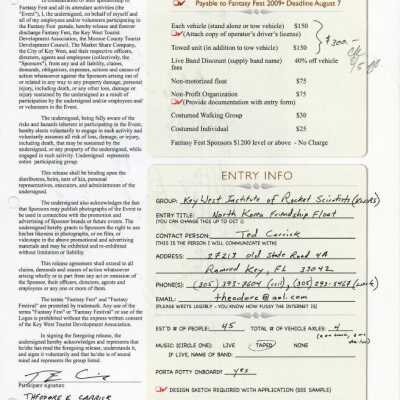 Fantasy Fest and all its attendant activities (the
"Event"), the undersigned, on behalf of myself and
all of my employees and/or volunteers participating in
the Fantasy Fest parade, hereby release and forever
discharge Fantasy Fest, the Key West Tourist
Development Association, the Monroe County Tourist
Development Council, The Market Share Company,
the City of Key West, and their respective officers,
directors, agents and employees (collectively, the
"Sponsors"), from any and all liability, claims,
demands, obligations, expenses, actions and causes of
action whatsoever against the Sponsors arising out of
or related in any way to any property damage, personal
injury, including death, or any other loss, damage or
injury sustained by the undersigned as a result of
participation by the undersigned and/or employees and/
or volunteers in the Event.
The undersigned, being fully aware of the
risks and hazards inherent in participating in the Event,
hereby elects voluntarily to engage in such activity and
voluntarily assumes all risk of loss, damage, or injury,
including death, that may be sustained by the
undersigned, or any property of the undersigned, while
engaged in such activity. Undersigned represents
entire participating group.
This release shall be binding upon the
distributees, heirs, next of kin, personal
representatives, executors, and administrators of the
undersigned.
The undersigned also acknowledges the fact
that Sponsors may publish photographs of the Event to
be used in connection with the promotion and
advertising of Sponsor brands or future events. The
undersigned hereby grants to Sponsors the right to use
his/her likeness in photographs, or on film, or
videotape in the above promotional and advertising
materials and may be exhibited and re-exhibited
without limitation or liability.
This release agreements shall extend to all
claims, demands and causes of action whatsoever
arising wholly or in part from any act or omission of
the Sponsor, their officers, directors, agents and
employees or any one or more of them.
The terms "Fantasy Fest" and "Fantasy
Festival" are protected by trademark. Any use of the
terms "Fantasy Fest" or "Fantasy Festival" or use of the
Logos is prohibited without the express written consent
of the Key West Tourist Development Association.
In signing the foregoing release, the
undersigned hereby acknowledges and represents that
he/she has read the foregoing release, understands it,
and signs it voluntarily and that he/she is of sound
mind and represents the group listed.
Participant signature
THEODORE E CARRICK
Payable to Fantasy Fest 2009 • Deadline August 7
Each vehicle (stand alone or tow vehicle) $150
(Attach copy of operator's driver's license)
Towed unit (in addition to tow vehicle) $150
$300
Live Band Discount (supply band name) 40% off vehicle
fees
Non-motorized float $75
Non-Profit Organization $75
(Provide documentation with entry form)
Costumed Walking Group $30
Costumed Individual $25
Fantasy Fest Sponsors $1200 level or above - No Charge
ENTRY INFO
GROUP: Key West Institute of Rocket Scientists
ENTRY TITLE: North Korea Friendship Float
(YOU CAN CHANGE THIS UP TO IT)
CONTACT PERSON: Ted Carrick
(THIS IS THE PERSON I WILL COMMUNICATE WITH)
ADDRESS: 27217 Old State Road 4A
Ramrod Key, FL 33042
EMAIL: theodore@aol.com
(PLEASE WRITE LEGIBLY - YOU KNOW HOW FUSSY THE INTERNET IS)
EST'D # OF PEOPLE: 45 TOTAL # OF VEHICLE AXLES: 4
MUSIC: (CIRCLE ONE) LIVE TAPED NONE
IF LIVE, NAME OF BAND:
PORTA POTTY ONBOARD? yes
DESIGN SKETCH REQUIRED WITH APPLICATION (SEE SAMPLE)